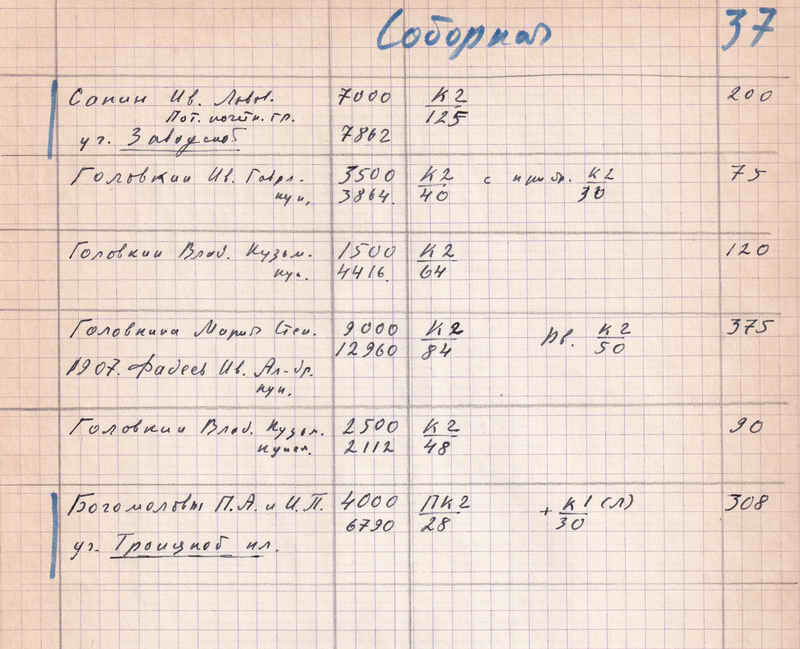 Соборная 37
Сапин Ив. Львов. 7000 К2 200
Пот. почётн. гр. 125
уг. Заводской 7862
Головкин Ив. Гавр. 3500 К2 с К2 75
куп. 3864. 40 30
Головкин Влад. Кузьм. 1500 К2 120
куп. 4416. 64
Головкина Мария Степ. 9000 К2 К2 375
12960 84 50
1907. Фадеев Ив. Ал-др.
куп.
Головкин Влад. Кузьм. 2500 К2 90
купец. 2112 48
Богомоловы П.А. и И.П. 4000 ПК2 + К1 (л) 308
6790 28 30
уг. Троицкой пл.